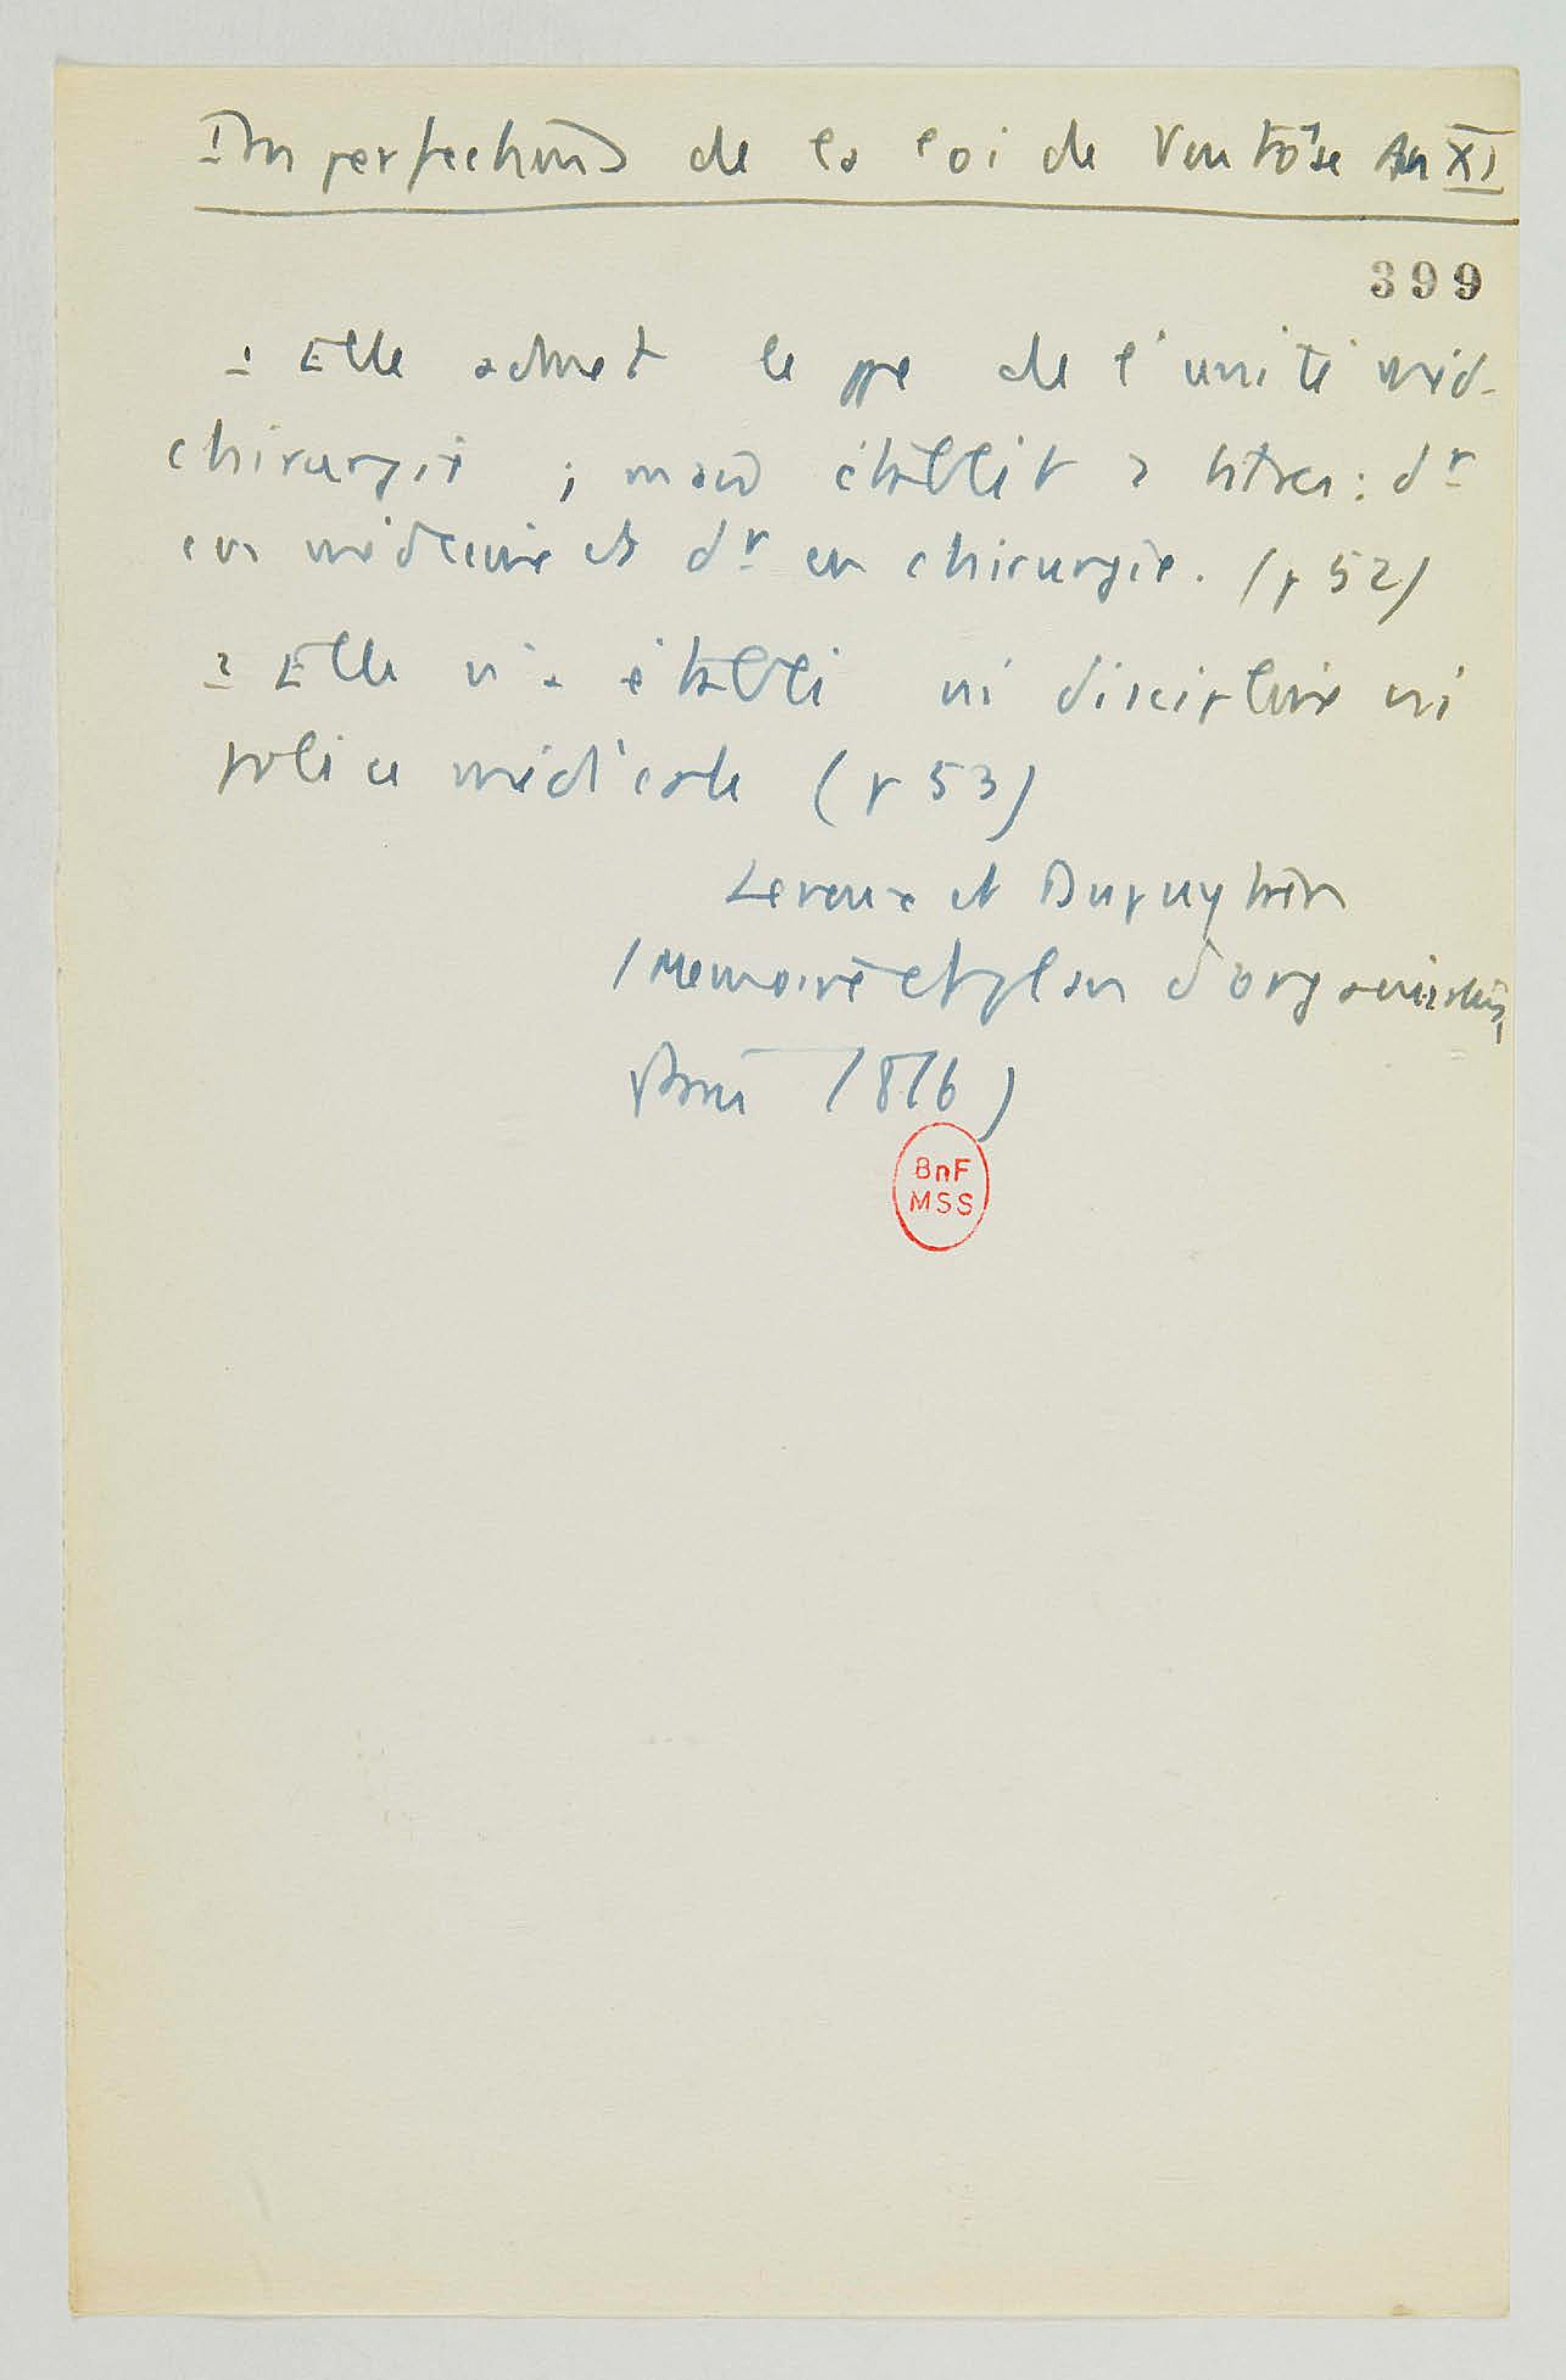 Imperfections de la loi de Ventôse An XI
399
1 Elle admet le ppe de l'unité méd-
chirurgie ; mais établit 2 titres : dr
en médecine et dr en chirurgie. (p 52)
2 Elle n'a établi ni discipline ni
police médicale (p 53)
Leroux et Dupuytren
(Memoire et plan d'organisation,
Paris 1816)
BnF
MSS